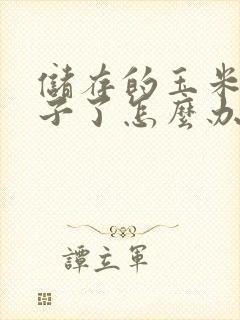 儲存的玉米
子了怎麼办
譚立軍